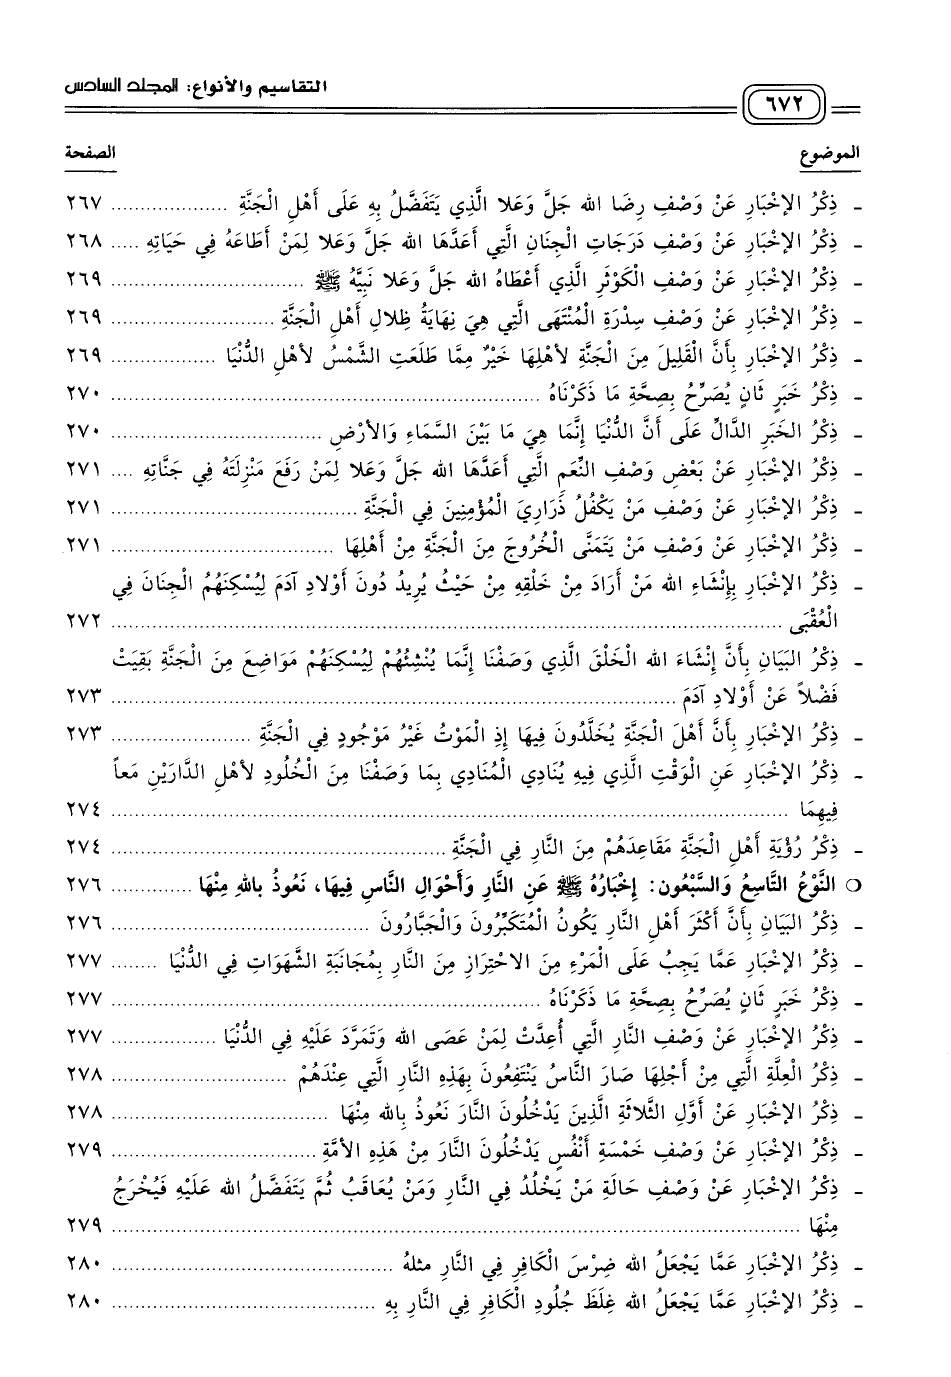 التقاسيم والأنواع: المجلد السادس
٦٧٢
الموضوع الصفحة
- ذِكْرُ الإخْبَارِ عَنْ وَصْفِ رِضَا الله جَلَّ وَعَلا الَّذِي يَتَفَضَّلُ بِهِ عَلَى أَهْلِ الْجَنَّةِ .................... ٢٦٧
- ذِكْرُ الإخْبَارِ عَنْ وَصْفِ دَرَجَاتِ الْجِنَانِ الَّتِي أَعَدَّهَا الله جَلَّ وَعَلا لِمَنْ أَطَاعَهُ فِي حَيَاتِهِ ..... ٢٦٨
- ذِكْرُ الإخْبَارِ عَنْ وَصْفِ الْكَوْثَرِ الَّذِي أَعْطَاهُ الله جَلَّ وَعَلا نَبِيَّهُ ﷺ ................................. ٢٦٩
- ذِكْرُ الإخْبَارِ عَنْ وَصْفِ سِدْرَةِ الْمُنْتَهَى الَّتِي هِيَ نِهَايَةُ ظِلالِ أَهْلِ الْجَنَّةِ ............................ ٢٦٩
- ذِكْرُ الإخْبَارِ بِأَنَّ الْقَلِيلَ مِنَ الْجَنَّةِ لأهْلِهَا خَيْرٌ مِمَّا طَلَعَتِ الشَّمْسُ لأهْلِ الدُّنْيَا .................. ٢٦٩
- ذِكْرُ خَبَرٍ ثَانٍ يُصَرِّحُ بِصِحَّةِ مَا ذَكَرْنَاهُ .......................................................................... ٢٧٠
- ذِكْرُ الخَبَرِ الدَّالِّ عَلَى أَنَّ الدُّنْيَا إِنَّمَا هِيَ مَا بَيْنَ السَّمَاءِ وَالأرْضِ .................................... ٢٧٠
- ذِكْرُ الإخْبَارِ عَنْ بَعْضِ وَصْفِ النِّعَمِ الَّتِي أَعَدَّهَا الله جَلَّ وَعَلا لِمَنْ رَفَعَ مَنْزِلَتَهُ فِي جَنَّاتِهِ .... ٢٧١
- ذِكْرُ الإخْبَارِ عَنْ وَصْفِ مَنْ يَكْفُلُ ذَرَارِيَ الْمُؤْمِنِينَ فِي الْجَنَّةِ .......................................... ٢٧١
- ذِكْرُ الإخْبَارِ عَنْ وَصْفِ مَنْ يَتَمَنَّى الْخُرُوجَ مِنَ الْجَنَّةِ مِنْ أَهْلِهَا ...................................... ٢٧١
- ذِكْرُ الإخْبَارِ بِإِنْشَاءِ الله مَنْ أَرَادَ مِنْ خَلْقِهِ مِنْ حَيْثُ يُرِيدُ دُونَ أَوْلادِ آدَمَ لِيُسْكِنَهُمُ الْجِنَانَ فِي
الْعُقْبَى ................................................................................................................... ٢٧٢
- ذِكْرُ البَيَانِ بِأَنَّ إِنْشَاءَ الله الْخَلْقَ الَّذِي وَصَفْنَا إِنَّمَا يُنْشِئُهُمْ لِيُسْكِنَهُمْ مَوَاضِعَ مِنَ الْجَنَّةِ بَقِيَتْ
فَضْلاً عَنْ أَوْلادِ آدَمَ ................................................................................................. ٢٧٣
- ذِكْرُ الإخْبَارِ بِأَنَّ أَهْلَ الْجَنَّةِ يُخَلَّدُونَ فِيهَا إِذِ الْمَوْتُ غَيْرُ مَوْجُودٍ فِي الْجَنَّةِ ........................ ٢٧٣
- ذِكْرُ الإخْبَارِ عَنِ الْوَقْتِ الَّذِي فِيهِ يُنَادِي الْمُنَادِي بِمَا وَصَفْنَا مِنَ الْخُلُودِ لأهْلِ الدَّارَيْنِ مَعاً
فِيهِمَا .................................................................................................................... ٢٧٤
- ذِكْرُ رُؤْيَةِ أَهْلِ الْجَنَّةِ مَقَاعِدَهُمْ مِنَ النَّارِ فِي الْجَنَّةِ .......................................................... ٢٧٤
○ النَّوْعُ التَّاسِعُ وَالسَّبْعُونَ: إِخْبَارُهُ ﷺ عَنِ النَّارِ وَأَحْوَالِ النَّاسِ فِيهَا، نَعُوذُ بالله مِنْهَا .............. ٢٧٦
- ذِكْرُ البَيَانِ بِأَنَّ أَكْثَرَ أَهْلِ النَّارِ يَكُونُ الْمُتَكَبِّرُونَ وَالْجَبَّارُونَ ............................................. ٢٧٦
- ذِكْرُ الإخْبَارِ عَمَّا يَجِبُ عَلَى الْمَرْءِ مِنَ الاحْتِرَازِ مِنَ النَّارِ بِمُجَانَبَةِ الشَّهَوَاتِ فِي الدُّنْيَا ........ ٢٧٧
- ذِكْرُ خَبَرٍ ثَانٍ يُصَرِّحُ بِصِحَّةِ مَا ذَكَرْنَاهُ .......................................................................... ٢٧٧
- ذِكْرُ الإخْبَارِ عَنْ وَصْفِ النَّارِ الَّتِي أُعِدَّتْ لِمَنْ عَصَى الله وَتَمَرَّدَ عَلَيْهِ فِي الدُّنْيَا .................. ٢٧٧
- ذِكْرُ الْعِلَّةِ الَّتِي مِنْ أَجْلِهَا صَارَ النَّاسُ يَنْتَفِعُونَ بِهَذِهِ النَّارِ الَّتِي عِنْدَهُمْ .............................. ٢٧٨
- ذِكْرُ الإخْبَارِ عَنْ أَوَّلِ الثَّلاثَةِ الَّذِينَ يَدْخُلُونَ النَّارَ نَعُوذُ بالله مِنْهَا ...................................... ٢٧٨
- ذِكْرُ الإخْبَارِ عَنْ وَصْفِ خَمْسَةِ أَنْفُسٍ يَدْخُلُونَ النَّارَ مِنْ هَذِهِ الأمَّةِ ................................... ٢٧٩
- ذِكْرُ الإخْبَارِ عَنْ وَصْفِ حَالَةِ مَنْ يَخْلُدُ فِي النَّارِ وَمَنْ يُعَاقَبُ ثُمَّ يَتَفَضَّلُ الله عَلَيْهِ فَيُخْرَجُ
مِنْهَا ..................................................................................................................... ٢٧٩
- ذِكْرُ الإخْبَارِ عَمَّا يَجْعَلُ الله ضِرْسَ الْكَافِرِ فِي النَّارِ مثلهُ ................................................ ٢٨٠
- ذِكْرُ الإخْبَارِ عَمَّا يَجْعَلُ الله غِلَظَ جُلُودِ الْكَافِرِ فِي النَّارِ بِهِ ............................................. ٢٨٠